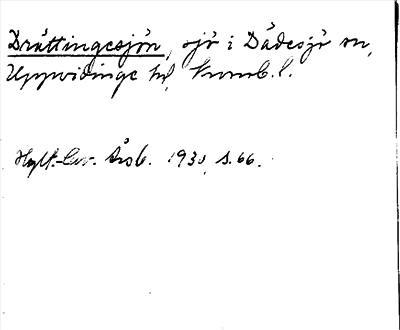 Drättingesjön, sjö i Dädesjö sn,
Uppvidinge hd, Kronob. l.
Hylt.-Cav. Årsb. 1930, s. 66.